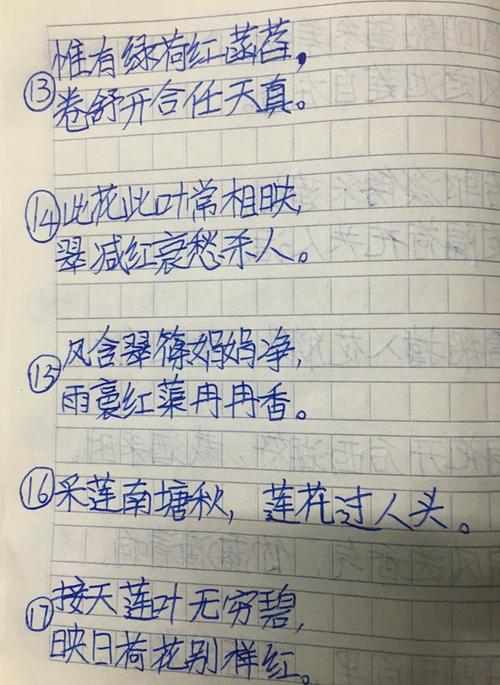 ⑬惟有绿荷红菡萏,
卷舒开合任天真。
⑭此花此叶常相映,
翠减红哀愁杀人。
⑮风含翠篠妈妈净,
雨裛红蕖冉冉香。
⑯采莲南塘秋,莲花过人头。
⑰接天莲叶无穷碧,
映日荷花别样红。